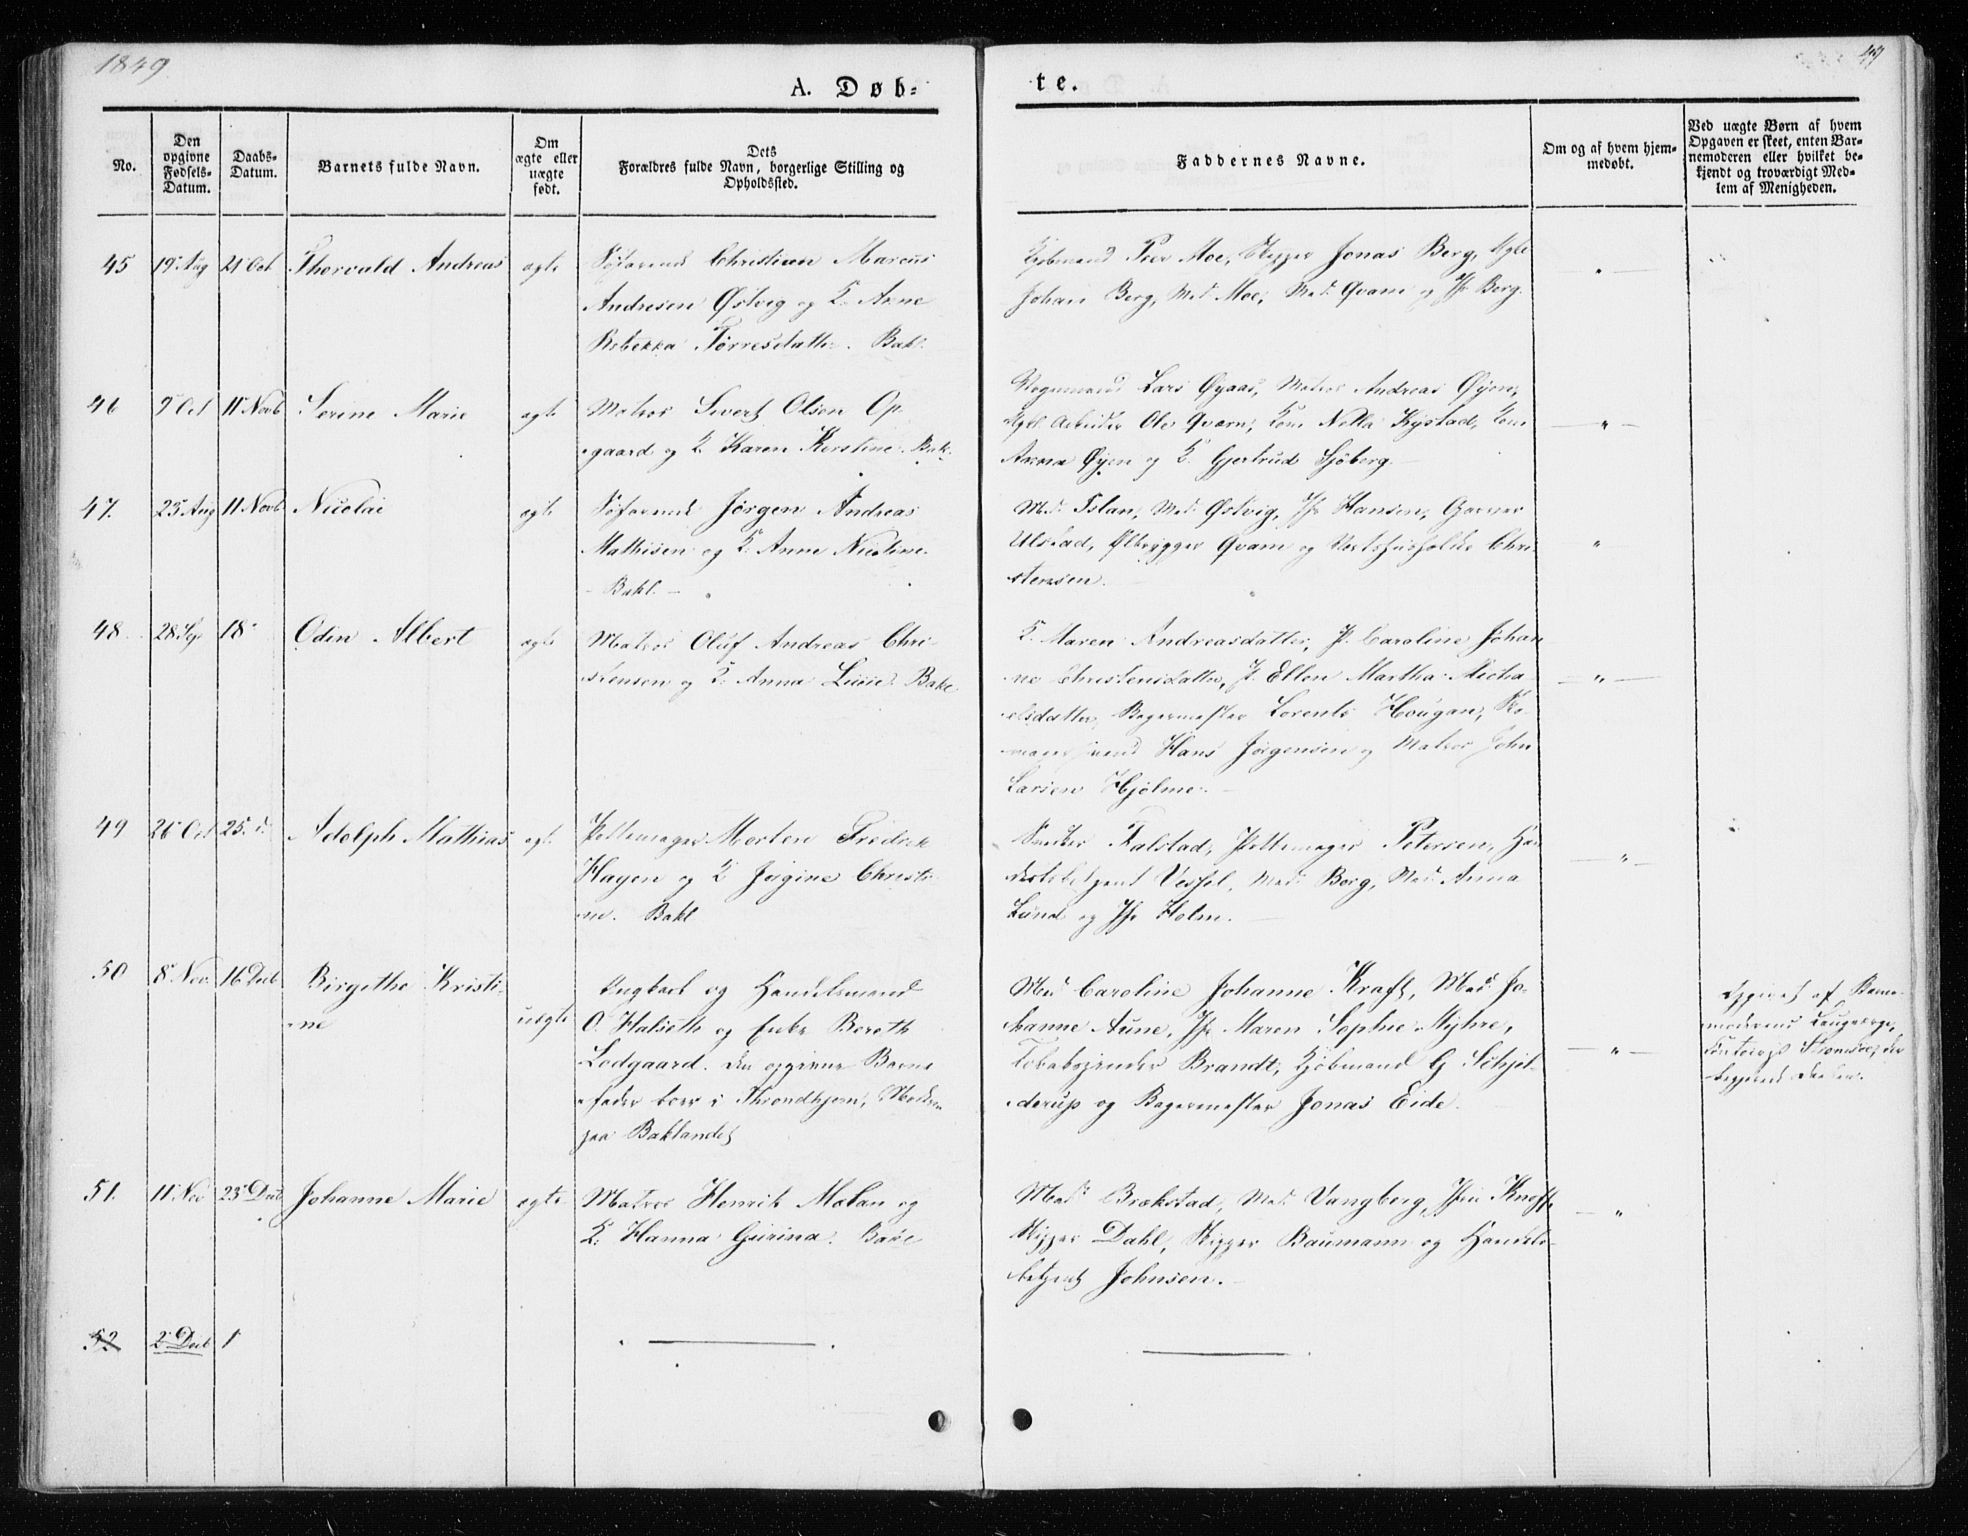 1849
49
A. Døb-
te.
No.
Den opgivne Fødsels-Datum.
Daabs-Datum.
Barnets fulde Navn.
Om ægte eller uægte født.
Dets
Forældres fulde Navn, borgerlige Stilling og
Opholdssted.
Faddernes Navne.
Om og af hvem hjem-
medøbt.
Ved uægte Børn af hvem
Opgaven er skeet, enten Bar-
nemoderen eller hvilket be-
kjendt og troværdigt Med-
lem af Menigheden.
45 19 Aug 21 Oct Thorvald Andreas ægte
Søfarende Christian Marcus
Andresen Østvig og K. Anne
Rebekka Torresdatter. Bakl.
Kjøbmand Peer Moe, Skipper Jonas Berg,
Johan Berg, Mad. Moe, Mad. Qvam og Jfr Berg.
46 11 Novb Serine Marie ægte
Matros Sivert Olsen Op-
gaard og K. Karen Kerstine. Bak.
Lars Øyaas, Matros Andreas Øyen,
Arbeider Ole Qværn, Kone Kystad, Kone
Anna Øyen og K. Gjertrud Sjøberg.
47. 23 Aug 11 Novb Nicolai ægte
Søfarende Jørgen Andreas
Mathisen og K. Anne Nicoline.
Bakl.
Mad. Islan, Mad. Østvig, Jfr Hansen, Garver
Ulstad, Ølbrygger Qvam og Vertshusholder Chri-
stensen.
48. 28 Sep 18 Odin Albert ægte
Matros Oluf Andreas Chri-
stensen og K. Anna Lisie. Bakl
K. Maren Andreasdatter, P. Caroline Johan-
ne Christensdatter, P. Ellen Martha Micha-
elsdatter, Bagermester Lorents Hougan,
Hans Jørgensen og Matros John
Larsen Hjelme.
49 26 Oct 25. d. Adolph Mathias ægte
Pottemager Morten Fredrik
Hagen og K. Jørgine Christi-
ne. Bakl
Snedker Falstad, Pottemager Petersen, Han-
delsbetjent Mad. Berg, Mad. Anna
Lund og Jfr Holm.
50 8 Nov. 16 Decb Birgithe Kristi-
ne
uægte
Ungkarl og Handelsmand
O. Halseth og Enke Bereth
Lodgaard. Den opgivne Barne-
fader boer i Throndhjem, Moderen
paa Baklandet
Mad Caroline Johanne Kraft, Mad Jo-
hanne Aune, Jfr Maren Sophie Myhre,
Tobakspinder Brandt, Kjøbmand G Schjel-
derup og Bagermester Jonas Eide.
Opgivet af Barne-
moderens Laugværge,
51. 11 Nov 23 Decb Johanne Marie ægte
Matros Henrik Molan og
K. Hanna Gurina. Bakl
Mad. Brækstad, Mad. Vangberg, Jfru Knoff,
Skipper Dahl, Skipper Baumann og Handels-
betjent Johnsen.
52 2 Decb 1